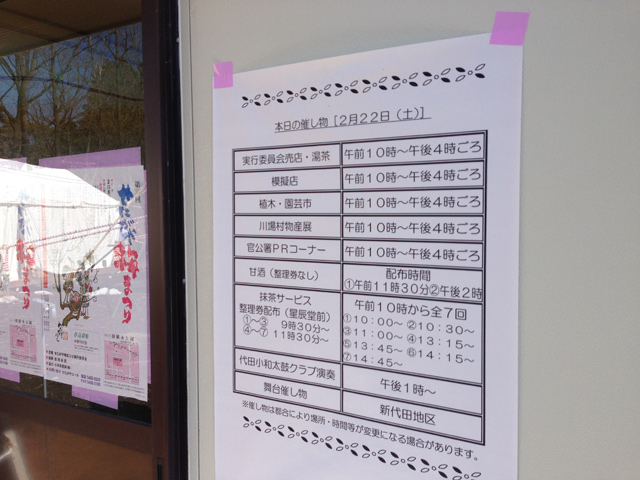 本日の催し物［2月22日（土）］
実行委員会売店・湯茶 午前10時～午後4時ごろ
模擬店 午前10時～午後4時ごろ
植木・園芸市 午前10時～午後4時ごろ
川場村物産展 午前10時～午後4時ごろ
官公署PRコーナー 午前10時～午後4時ごろ
甘酒（整理券なし） 配布時間
①午前11時30分②午後2時
抹茶サービス
整理券配布（星辰堂前）
①～③ 9時30分～
④～⑦ 11時30分～
午前10時から全7回
①10：00～ ②10：30～
③11：00～ ④13：15～
⑤13：45～ ⑥14：15～
⑦14：45～
代田小和太鼓クラブ演奏 午後1時～
舞台催し物 新代田地区
※催し物は都合により場所・時間等が変更になる場合があります。
梅まつり